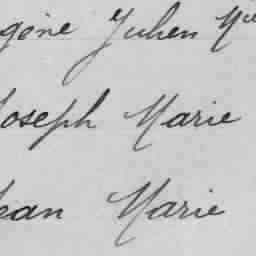 gène Julien Ma
Joseph Marie
Jean Marie